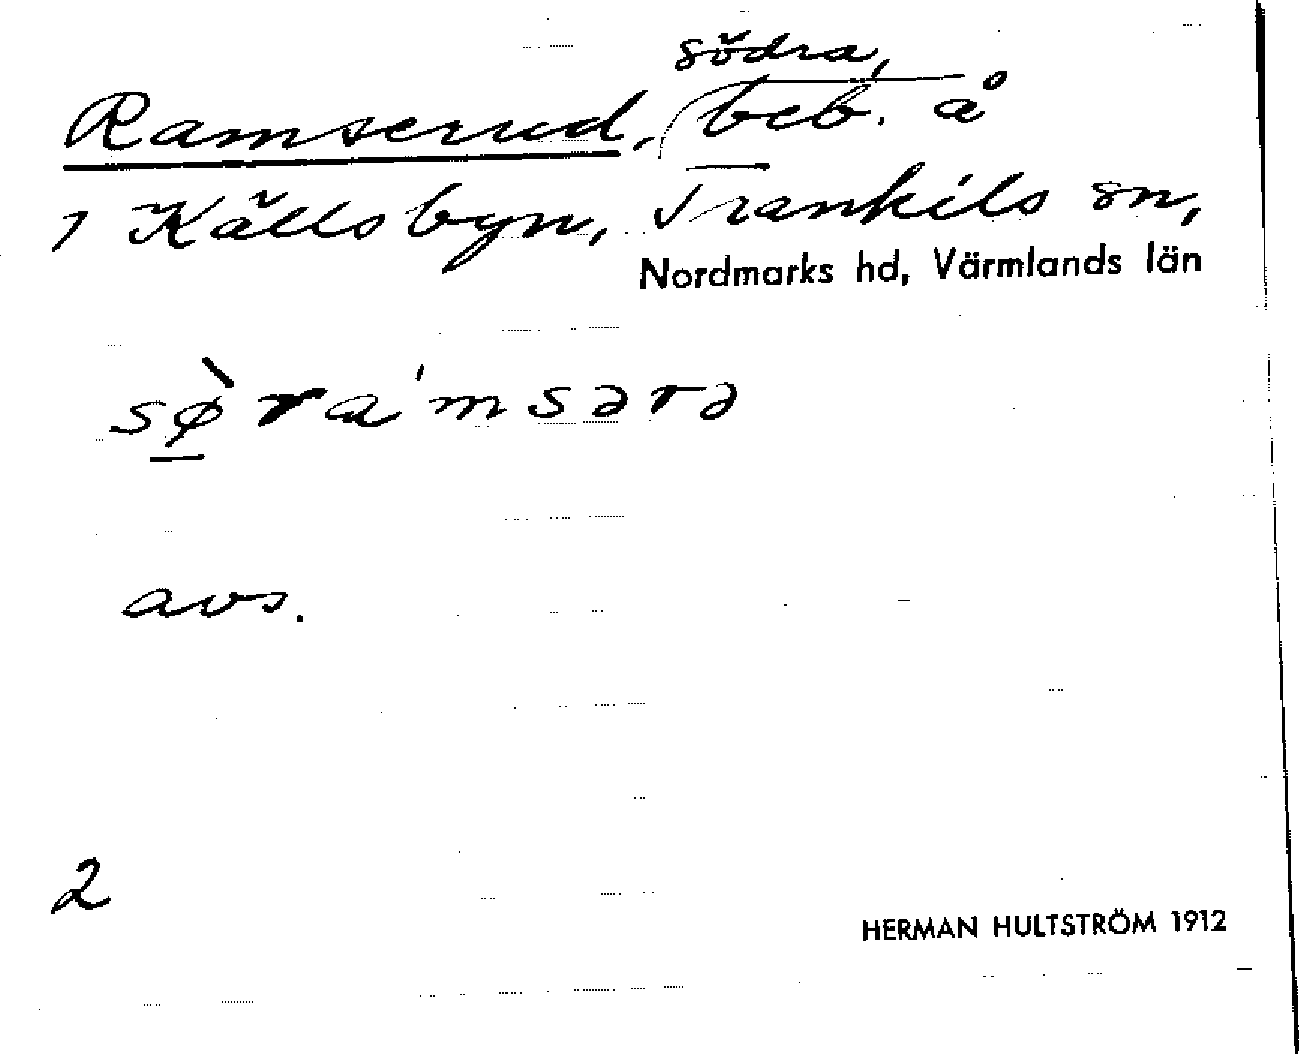 södra,
Ramserud, beb. å
1 Källsbyn, Trankils sn,
Nordmarks hd, Värmlands län
sø̠̀ra'msərə
avs.
2
HERMAN HULTSTRÖM 1912